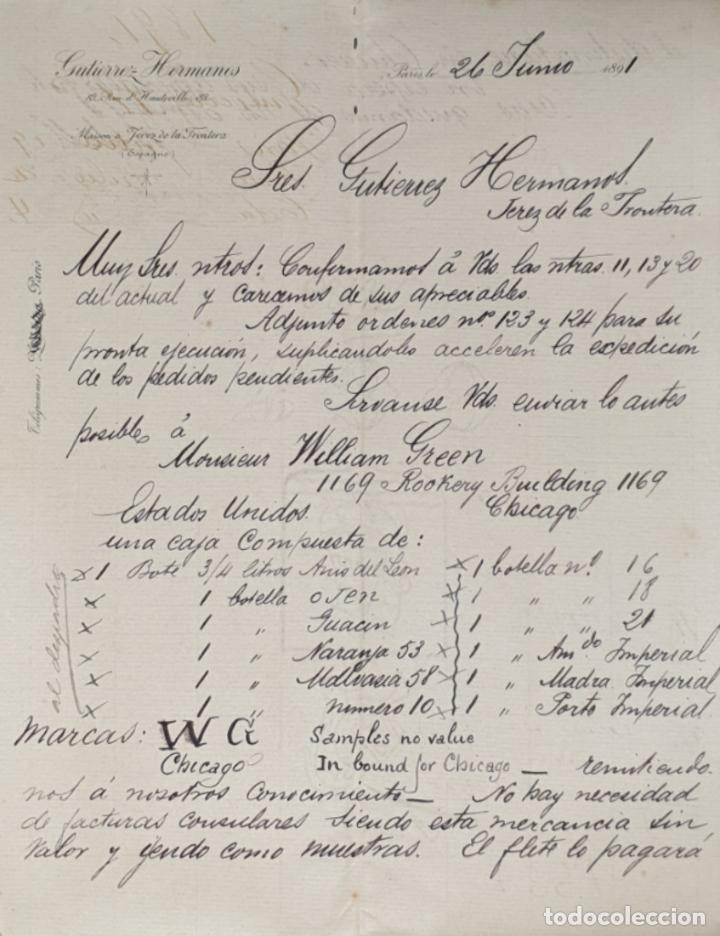 Gutierrez Hermanos
Paris le 26 Junio 1891
18, Rue d'Hauteville, 18
Maison à Jerez de la Frontera
(Espagne)
Sres. Gutierrez Hermanos.
Jerez de la Frontera.
Telegramas: Paris
Muy Sres. ntros: Confirmamos á Vds. las ntras. 11, 13 y 20
del actual y carecemos de sus apreciables.
Adjunto ordenes nos. 123 y 124 para su
pronta ejecución, suplicandoles acceleren la expedición
de los pedidos pendientes.
Sirvanse Vds. enviar lo antes
posible á
Monsieur William Green
1169 Rookery Building 1169
Estados Unidos. Chicago
una caja compuesta de:
x 1 Bote 3/4 litros Anis del Leon x 1 botella nº 16
x 1 botella Ojen x 1 " " 18
x 1 " Guacin x 1 " " 21
x 1 " Naranja 53 x 1 " Amdo Imperial
x 1 " Malvasia 58 x 1 " Madra Imperial
x 1 " numero 10 x 1 " Porto Imperial
al
Marcas: W G Samples no value
Chicago In bound for Chicago — remitiendo
nos á nosotros conocimiento — No hay necesidad
de facturas consulares siendo esta mercancia sin
valor y yendo como muestras. El flete lo pagará
todocoleccion.net